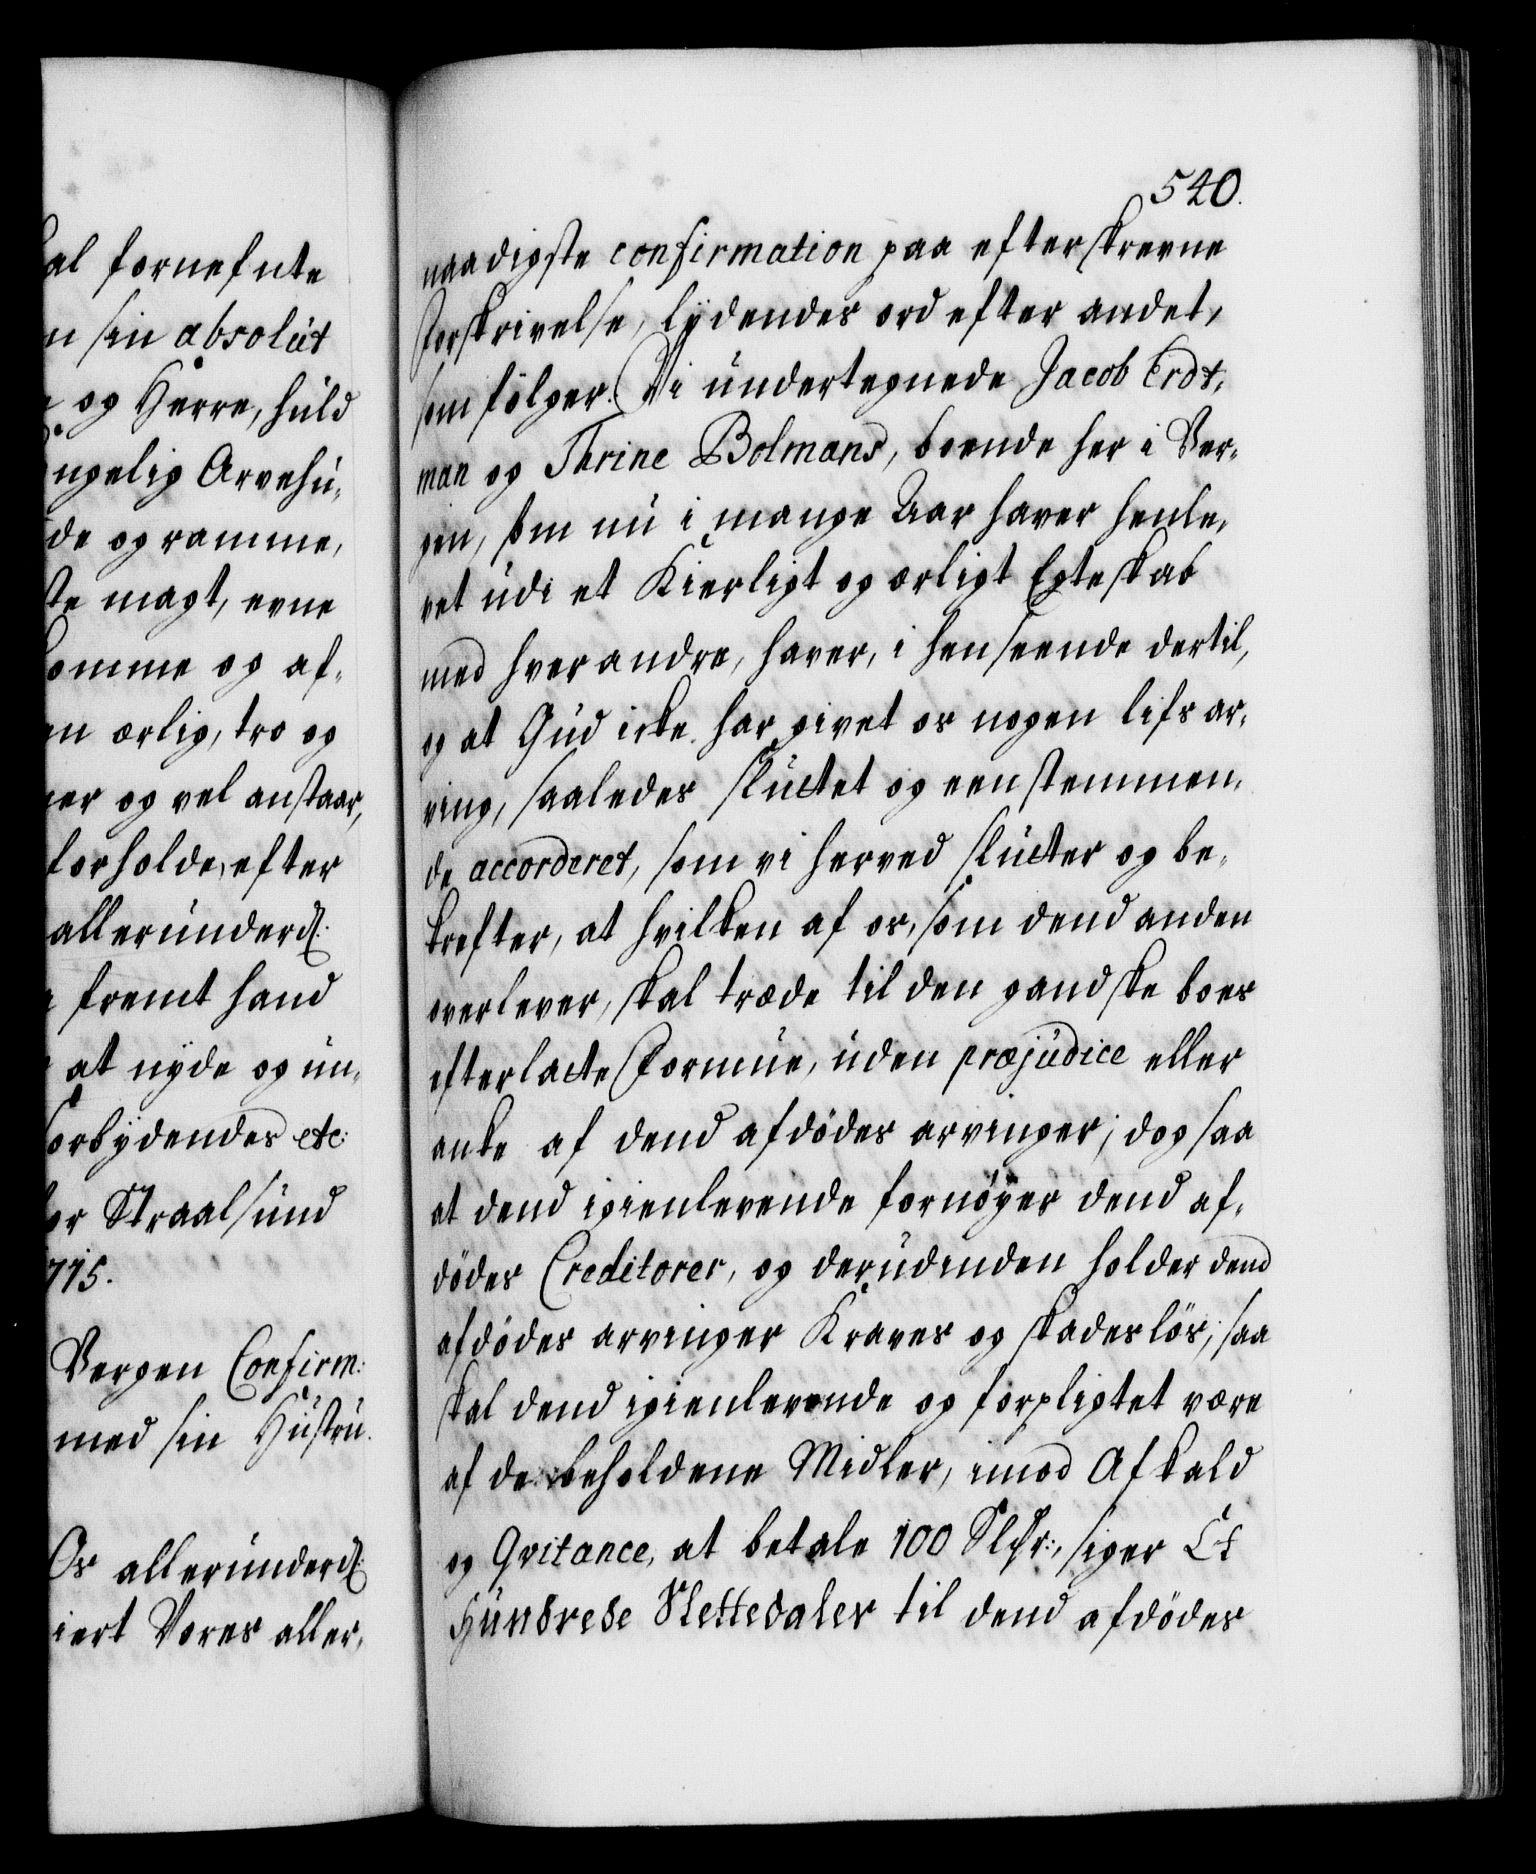 al fornefnte
n sin absolut
og Herre, huld
ngelig Arvehu-
de og ramme,
ste magt, evne
komme og af-
en ærlig, tro og
ner og vel anstaar,
forholde, efter
allerunderd:
fremt hand
at nyde og un-
forbydendes etc:
for Straalsund
1715.
Bergen Confirm:
med sin Hustru.
Os allerunderd:
iert Vores aller-
540.
naadigste confirmation paa efterskrevne
forskrivelse, lydendes ord efter andet,
som følger. Vi undertegnede Jacob Erdt-
man og Thrine Bolmans, boende her i Ber-
gen, som nu i mange Aar haver henle-
vet udi et Kierligt og ærligt Egteskab
med hverandre, haver, i henseende dertil,
og at Gud icke har givet os nogen lifs ar-
ving, saaledes sluttet og eenstemmen-
de accorderet, som vi herved slutter og be-
krefter, at hvilken af os, som dend anden
overlever, skal træde til den gandske boes
efterlatte Formue, uden præjudice eller
anke af dend afdødes arvinger; dog saa
at dend igienlevende fornøyer dend af-
dødes Creditorer, og derudinden holder dend
afdødes arvinger Kraves og skadesløs; saa
skal dend igienlevende og forpligtet være
af de beholdene Midler, imod Afkald
og Qvitance, at betale 100 Sldr:, siger Et
Hundrede Slettedaler til dend afdødes